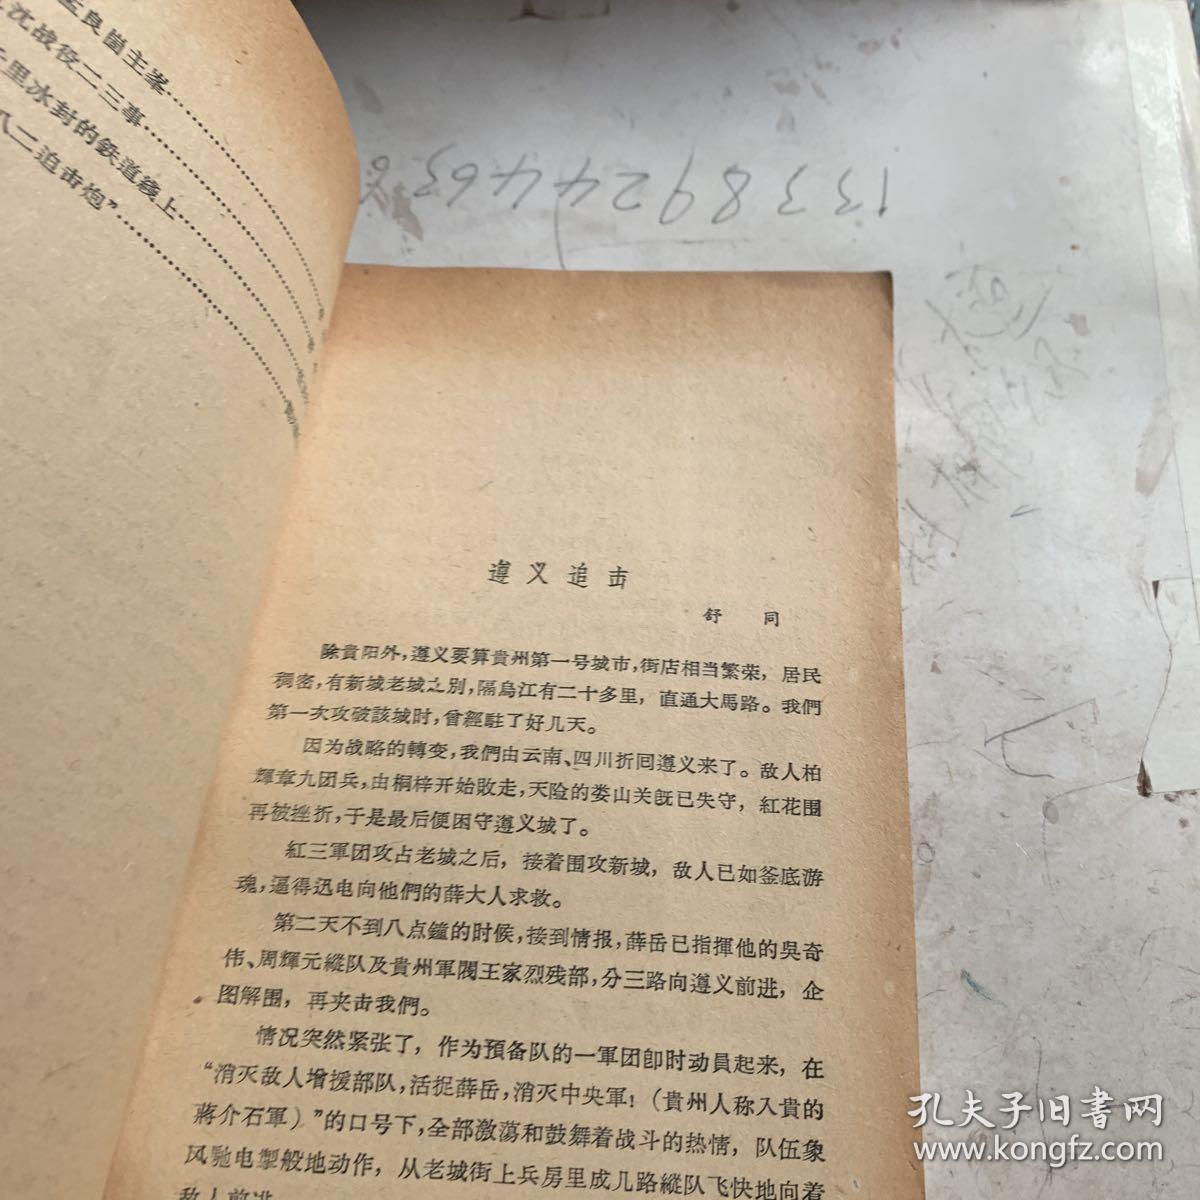 孟良崮主峯……
沈战役二三事……
千里冰封的鉄道綫上……
八二迫击炮”……
遵义追击
舒同
除貴阳外，遵义要算貴州第一号城市，街店相当繁荣，居民
稠密，有新城老城之別，隔烏江有二十多里，直通大馬路。我們
第一次攻破該城时，曾經駐了好几天。
因为战略的轉变，我們由云南、四川折回遵义来了。敌人柏
輝章九团兵，由桐梓开始敗走，天险的娄山关既已失守，紅花園
再被挫折，于是最后便困守遵义城了。
紅三軍团攻占老城之后，接着围攻新城，敌人已如釜底游
魂，逼得迅电向他們的薛大人求救。
第二天不到八点鐘的时候，接到情报，薛岳已指揮他的吳奇
伟、周輝元縱队及貴州軍閥王家烈残部，分三路向遵义前进，企
图解围，再夹击我們。
情况突然紧张了，作为預备队的一軍团卽时动員起来，在
“消灭敌人增援部队，活捉薛岳，消灭中央軍！（貴州人称入貴的
蔣介石軍）”的口号下，全部激荡和鼓舞着战斗的热情，队伍象
风馳电掣般地动作，从老城街上兵房里成几路縱队飞快地向着
敌人前进
1338924463
孔夫子旧书网
www.kongfz.com